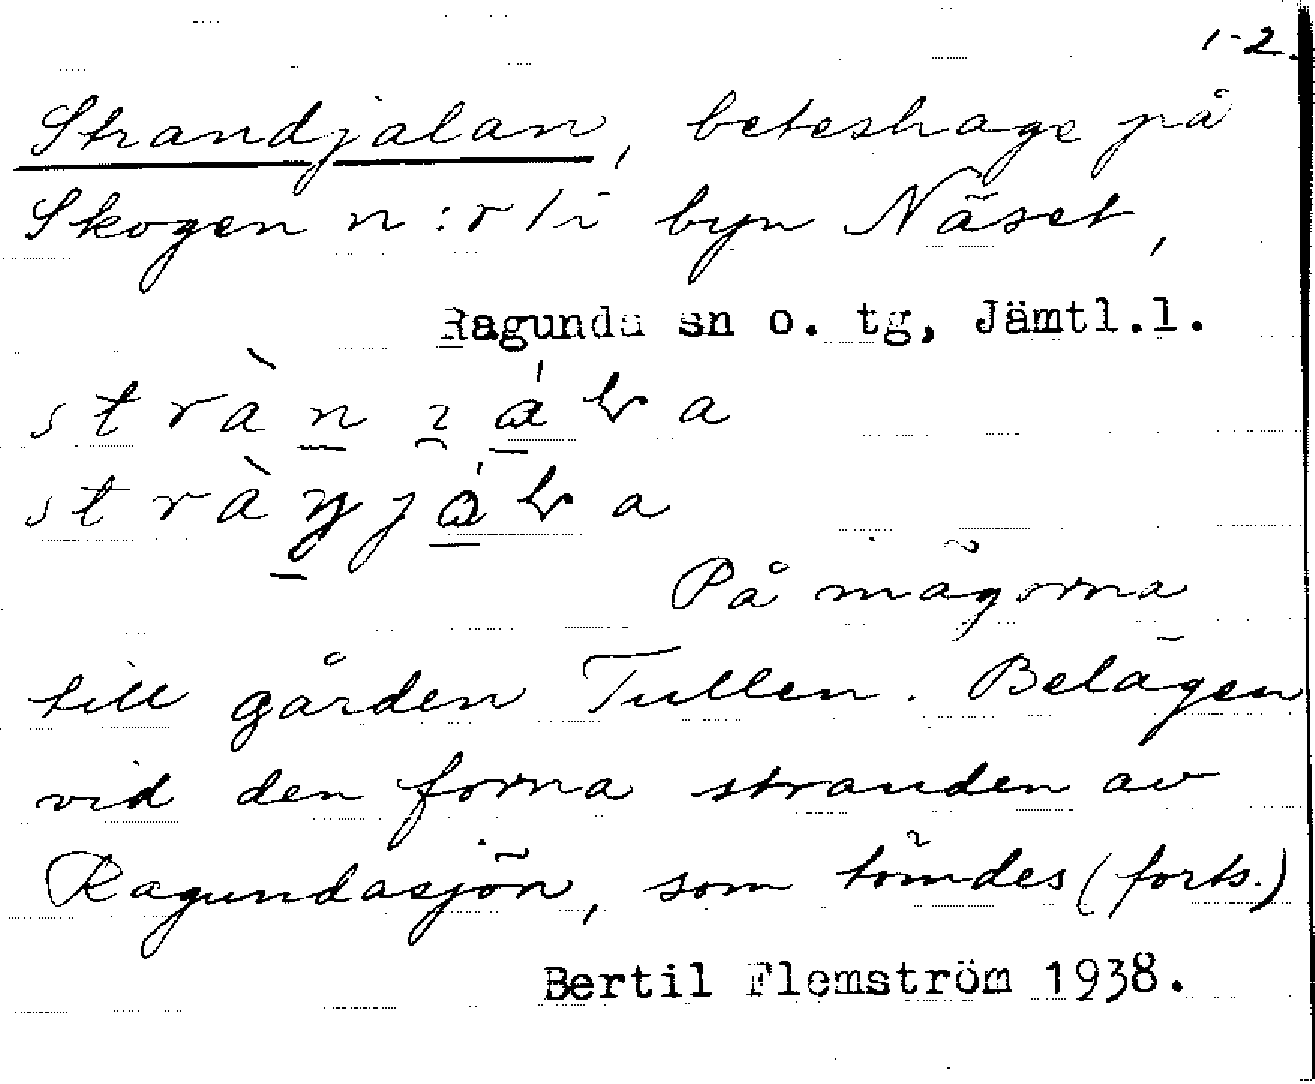 1-2.
Strandjalan, beteshage på
Skogen n:r 1 i byn Näset,
Ragunda sn o. tg, Jämtl.l.
På mågorna
till gården Tullen. Belägen
vid den forna stranden av
Ragundasjön, som tömdes (forts.)
Bertil Flemström 1938.